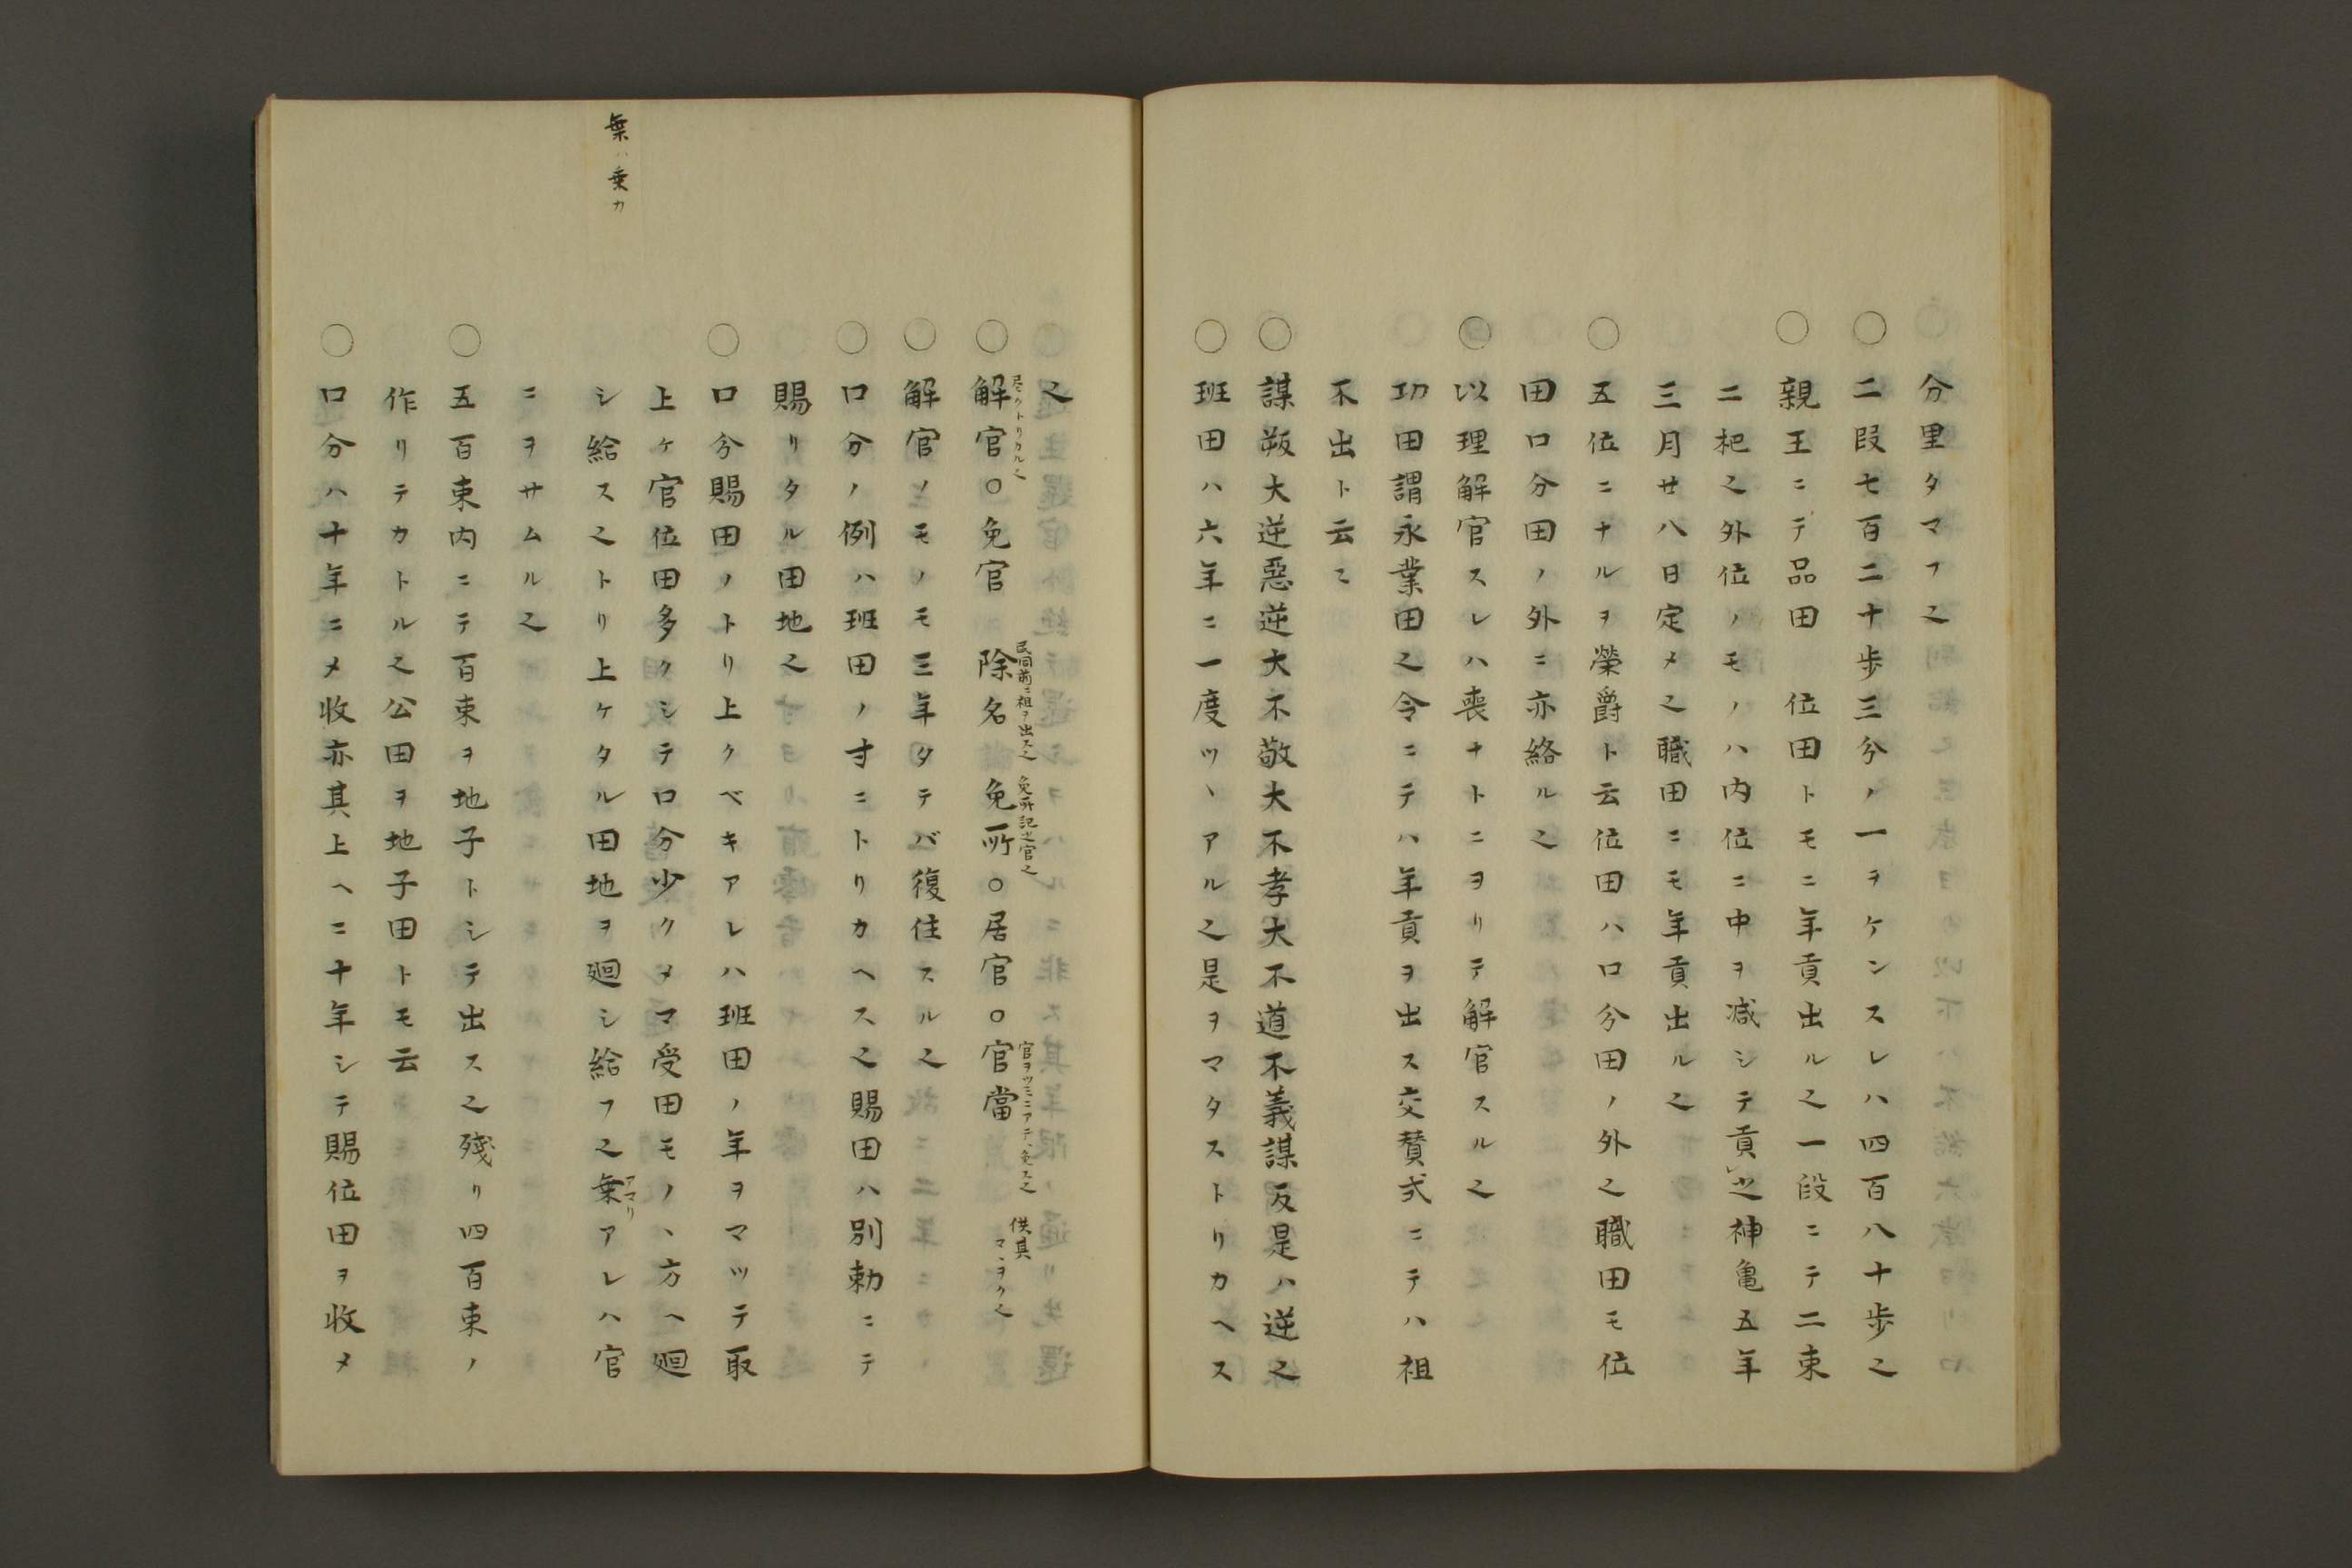 分里タマフ之
○二段七百二十歩三分ノ一ヲケンスレハ四百八十歩之
○親王ニテ品田 位田トモニ年貢出ル之一段ニテ二束
二杷之外位ノモノハ内位ニ中ヲ減シテ貢レ之神亀五年
三月廿八日定メ之職田ニモ年貢出ル之
○五位ニナルヲ榮爵ト云位田ハ口分田ノ外之職田モ位
田口分田ノ外ニ亦絡ル之
○以理解官スレハ喪ナトニヨリテ解官スル之
功田謂永業田之令ニテハ年貢ヲ出ス交賛式ニテハ祖
不出ト云々
○謀叛大逆惡逆大不敬大不孝大不道不義謀反是ハ逆之
○班田ハ六年ニ一度ツヽアル之是ヲマタストリカヘス
之
○解官○免官 除名 免所○居官○官當
尽クトリカル之
民同前ニ祖ヲ出ス之
免所記之官之
官ヲツミニアテヽ免ス之
供其マヽヲク之
○解官ノモノモ三年タテバ復住スル之
○口分ノ例ハ班田ノ寸ニトリカヘス之賜田ハ別勅ニテ
賜リタル田地之
○口分賜田ノトリ上クベキアレハ班田ノ年ヲマツテ取
上ケ官位田多クシテ口分少クタマ受田モノヽ方ヘ廻
シ給ス之トリ上ケタル田地ヲ廻シ給フ之葉アレハ官
アマリ
葉ハ乗カ
ニヲサムル之
○五百束内ニテ百束ヲ地子トシテ出ス之殘リ四百束ノ
作リテカトル之公田ヲ地子田トモ云
○口分ハ十年ニメ收亦其上ヘニ十年シテ賜位田ヲ收メ